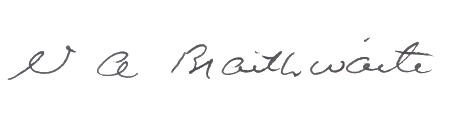 N A Braithwaite